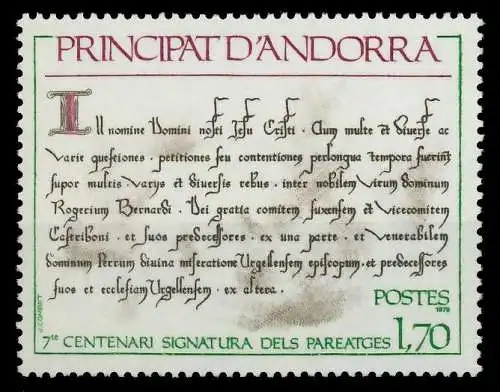 PRINCIPAT D'ANDORRA
In nomine Domini nostri Jesu Cristi · Cum multe et diverse ac
varie questiones · petitiones seu contentiones perlongua tempora fuerint
super multis varys et diversis rebus · inter nobilem virum dominum
Rogerium Bernardi · Dei gratia comitem fuxensem et vicecomitem
Castriboni · et suos predecessores · ex una parte · et venerabilem
dominum Petrum divina miseratione Urgellensem episcopum · et predecessores
suos et ecclesiam Urgellensem · ex altera ·
POSTES
1978
1,70
7te CENTENARI SIGNATURA DELS PAREATGES
J. COMBET